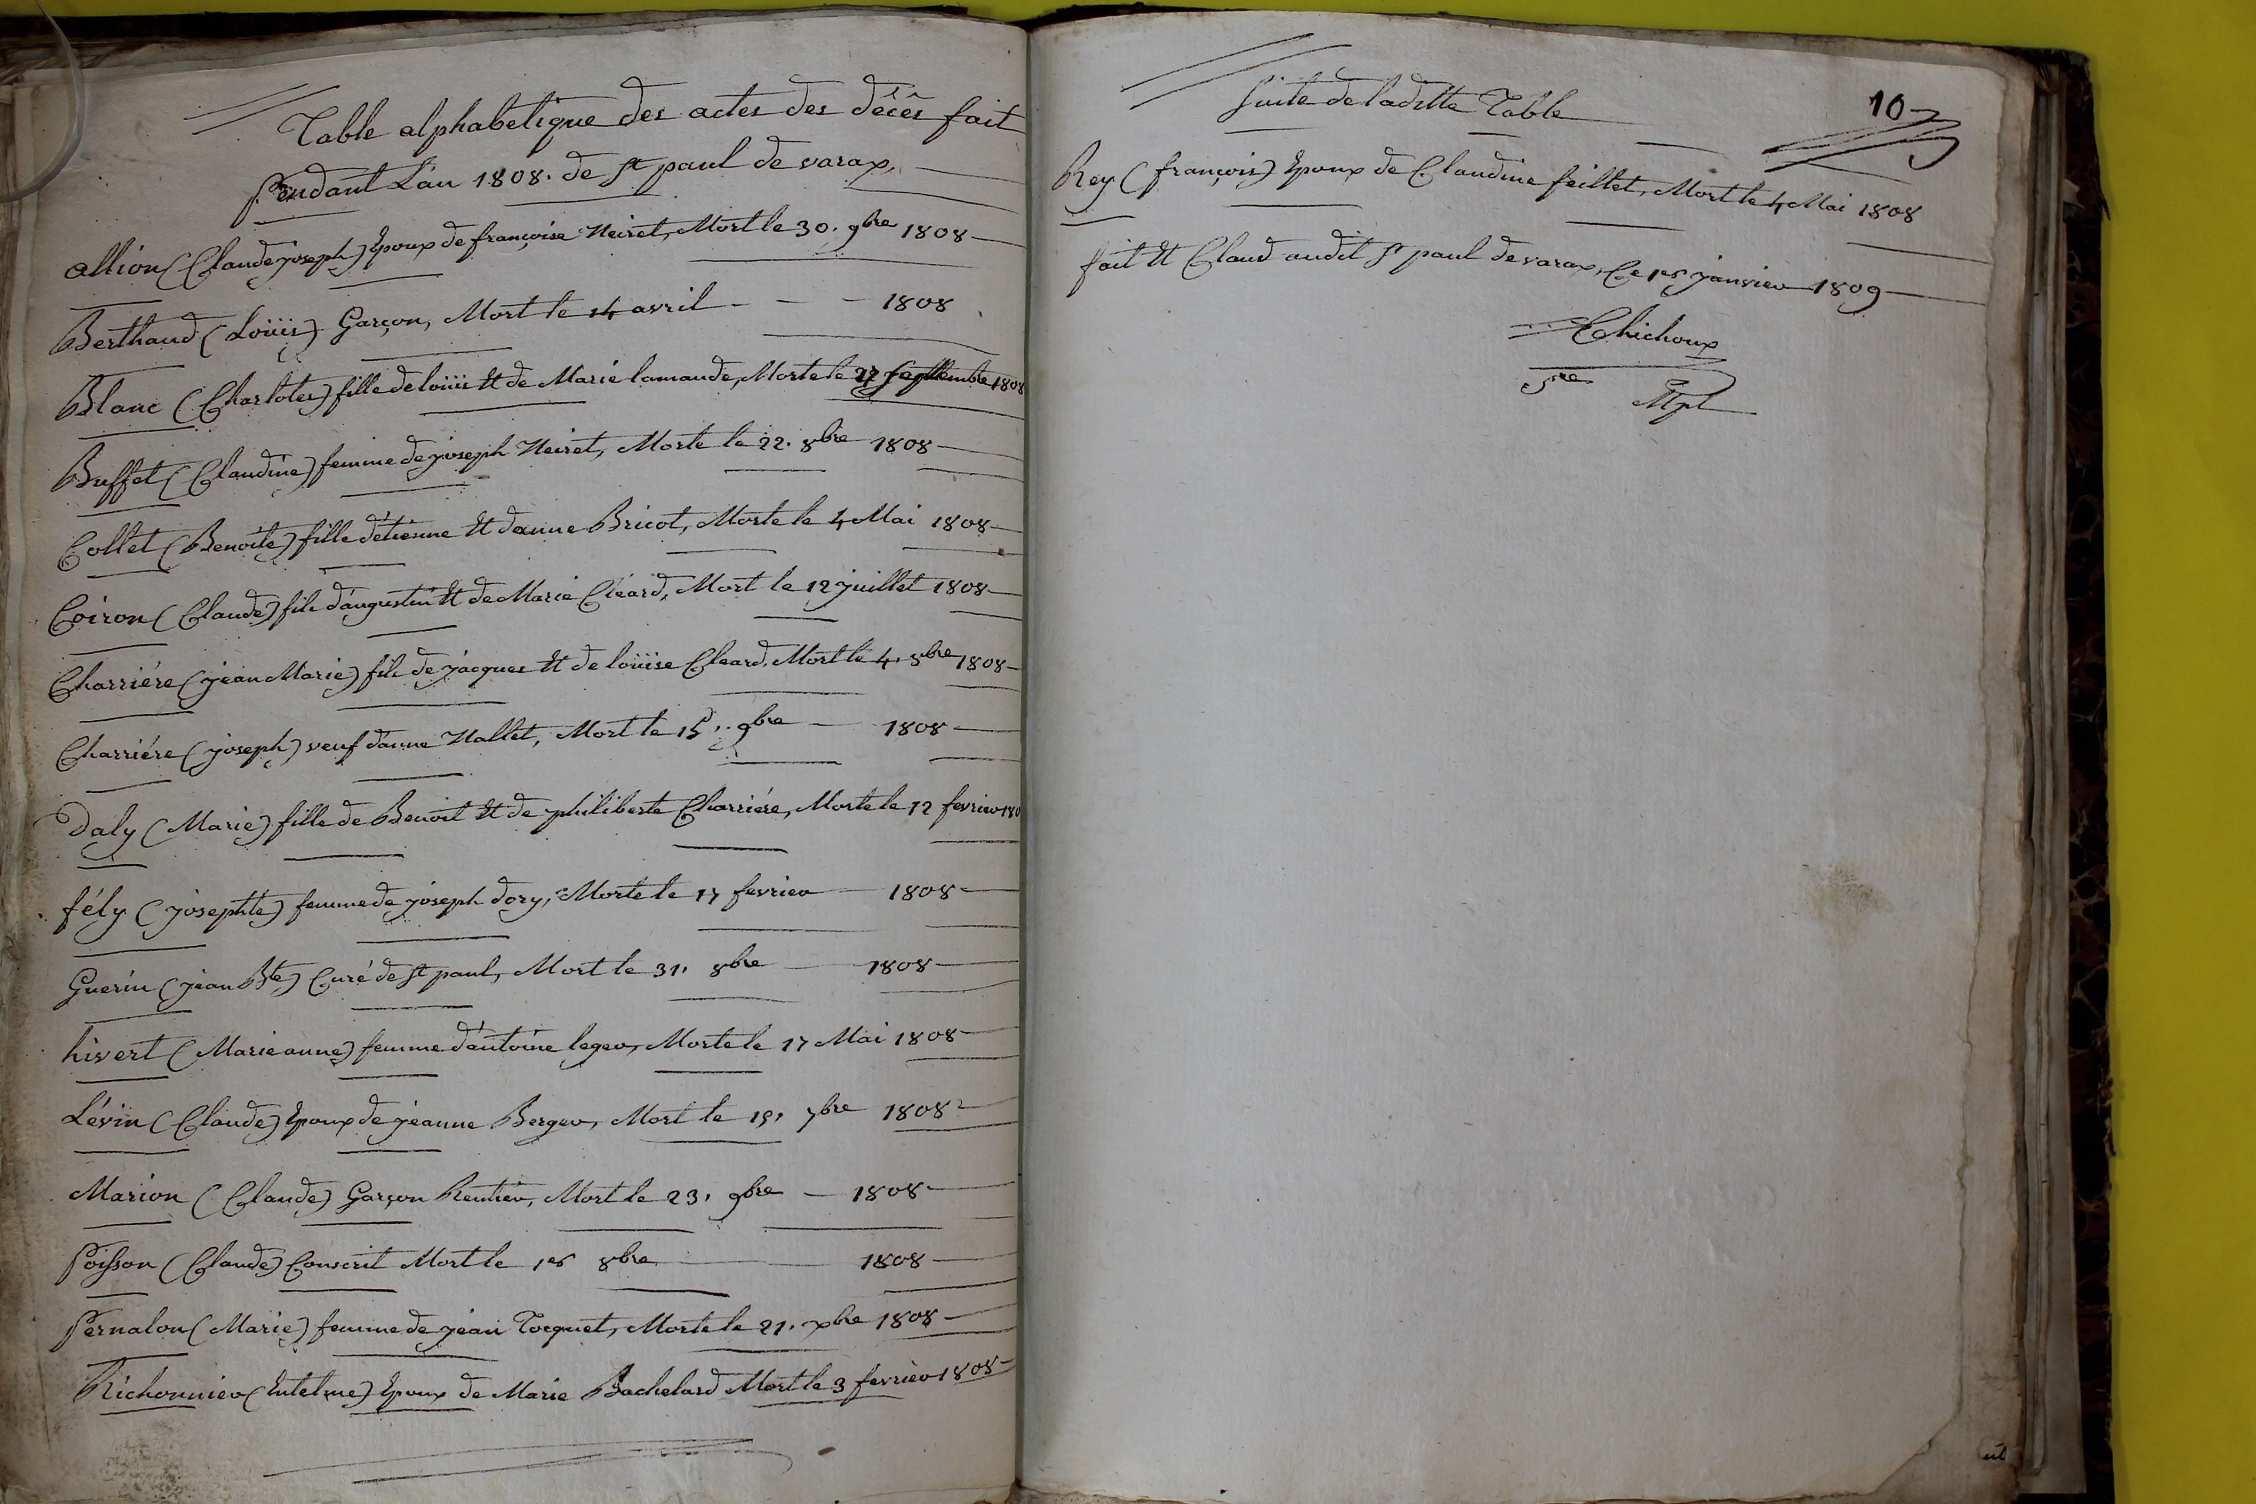 Table alphabetique des actes des décês fait
Pendant L'an 1808. de St paul de varax,
allion (Claude joseph) Epoux de françoise Neiret, Mort le 30. 9bre 1808
Berthaud (Loüis) Garçon, Mort le 14 avril - - - 1808
Blanc (Charlotes) fille de loüis Et de Marie lamande, Morte le 27 septembre 1808
Buffet (Claudine) femme de joseph Neiret, Morte le 22. 8bre 1808
Collet (Benoite) fille d'étienne Et d'anne Bricot, Morte le 4 Mai 1808
Coiron (Claude) fils d'augustin Et de Marie Cléard, Mort le 12 juillet 1808
Charriére (jean Marie) fils de jacques Et de loüise Cleard, Mort le 4. 8bre 1808
Charriére (joseph) veuf d'anne Nallet, Mort le 15. 9bre 1808
Daly (Marie) fille de Benoit Et de philiberte Charriére, Morte le 12 fevrier 180
fély (josephte) femme de joseph dory, Morte le 17 fevrier 1808
Guerin (jean Bte) Curé de St paul, Mort le 31. 8bre 1808
hivert (Marie anne) femme d'antoine leger, Morte le 17 Mai 1808
Lévin (Claude) Epoux de jeanne Berger, Mort le 19. 7bre 1808
Marion (Claude) Garçon Rentier, Mort le 23. 9bre 1808
Poisson (Claude) Conscrit Mort le 1er 8bre 1808
Pernalon (Marie) femme de jean Tocquet, Morte le 21. xbre 1808
Richonnier (Entelme) Epoux de Marie Bachelard Mort le 3 fevrier 1808
Suite de ladite Table
10
Rey (françois) Epoux de Claudine feillet, Mort le 4 Mai 1808
fait Et Claud audit St paul de varax, Ce 1er janvier 1809
Chichoux